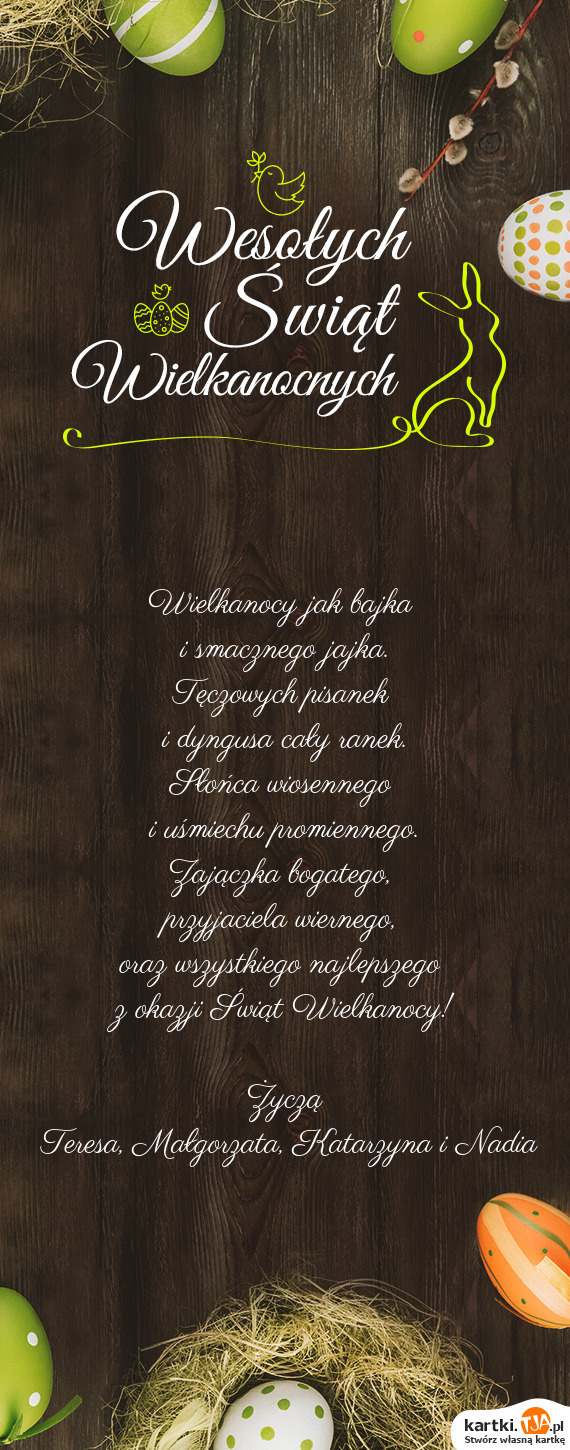 Wesołych
Świąt
Wielkanocnych
Wielkanocy jak bajka
i smacznego jajka.
Tęczowych pisanek
i dyngusa cały ranek.
Słońca wiosennego
i uśmiechu promiennego.
Zajączka bogatego,
przyjaciela wiernego,
oraz wszystkiego najlepszego
z okazji Świąt Wielkanocy!
Życzą
Teresa, Małgorzata, Katarzyna i Nadia
kartki.TJA.pl
Stwórz własną kartkę